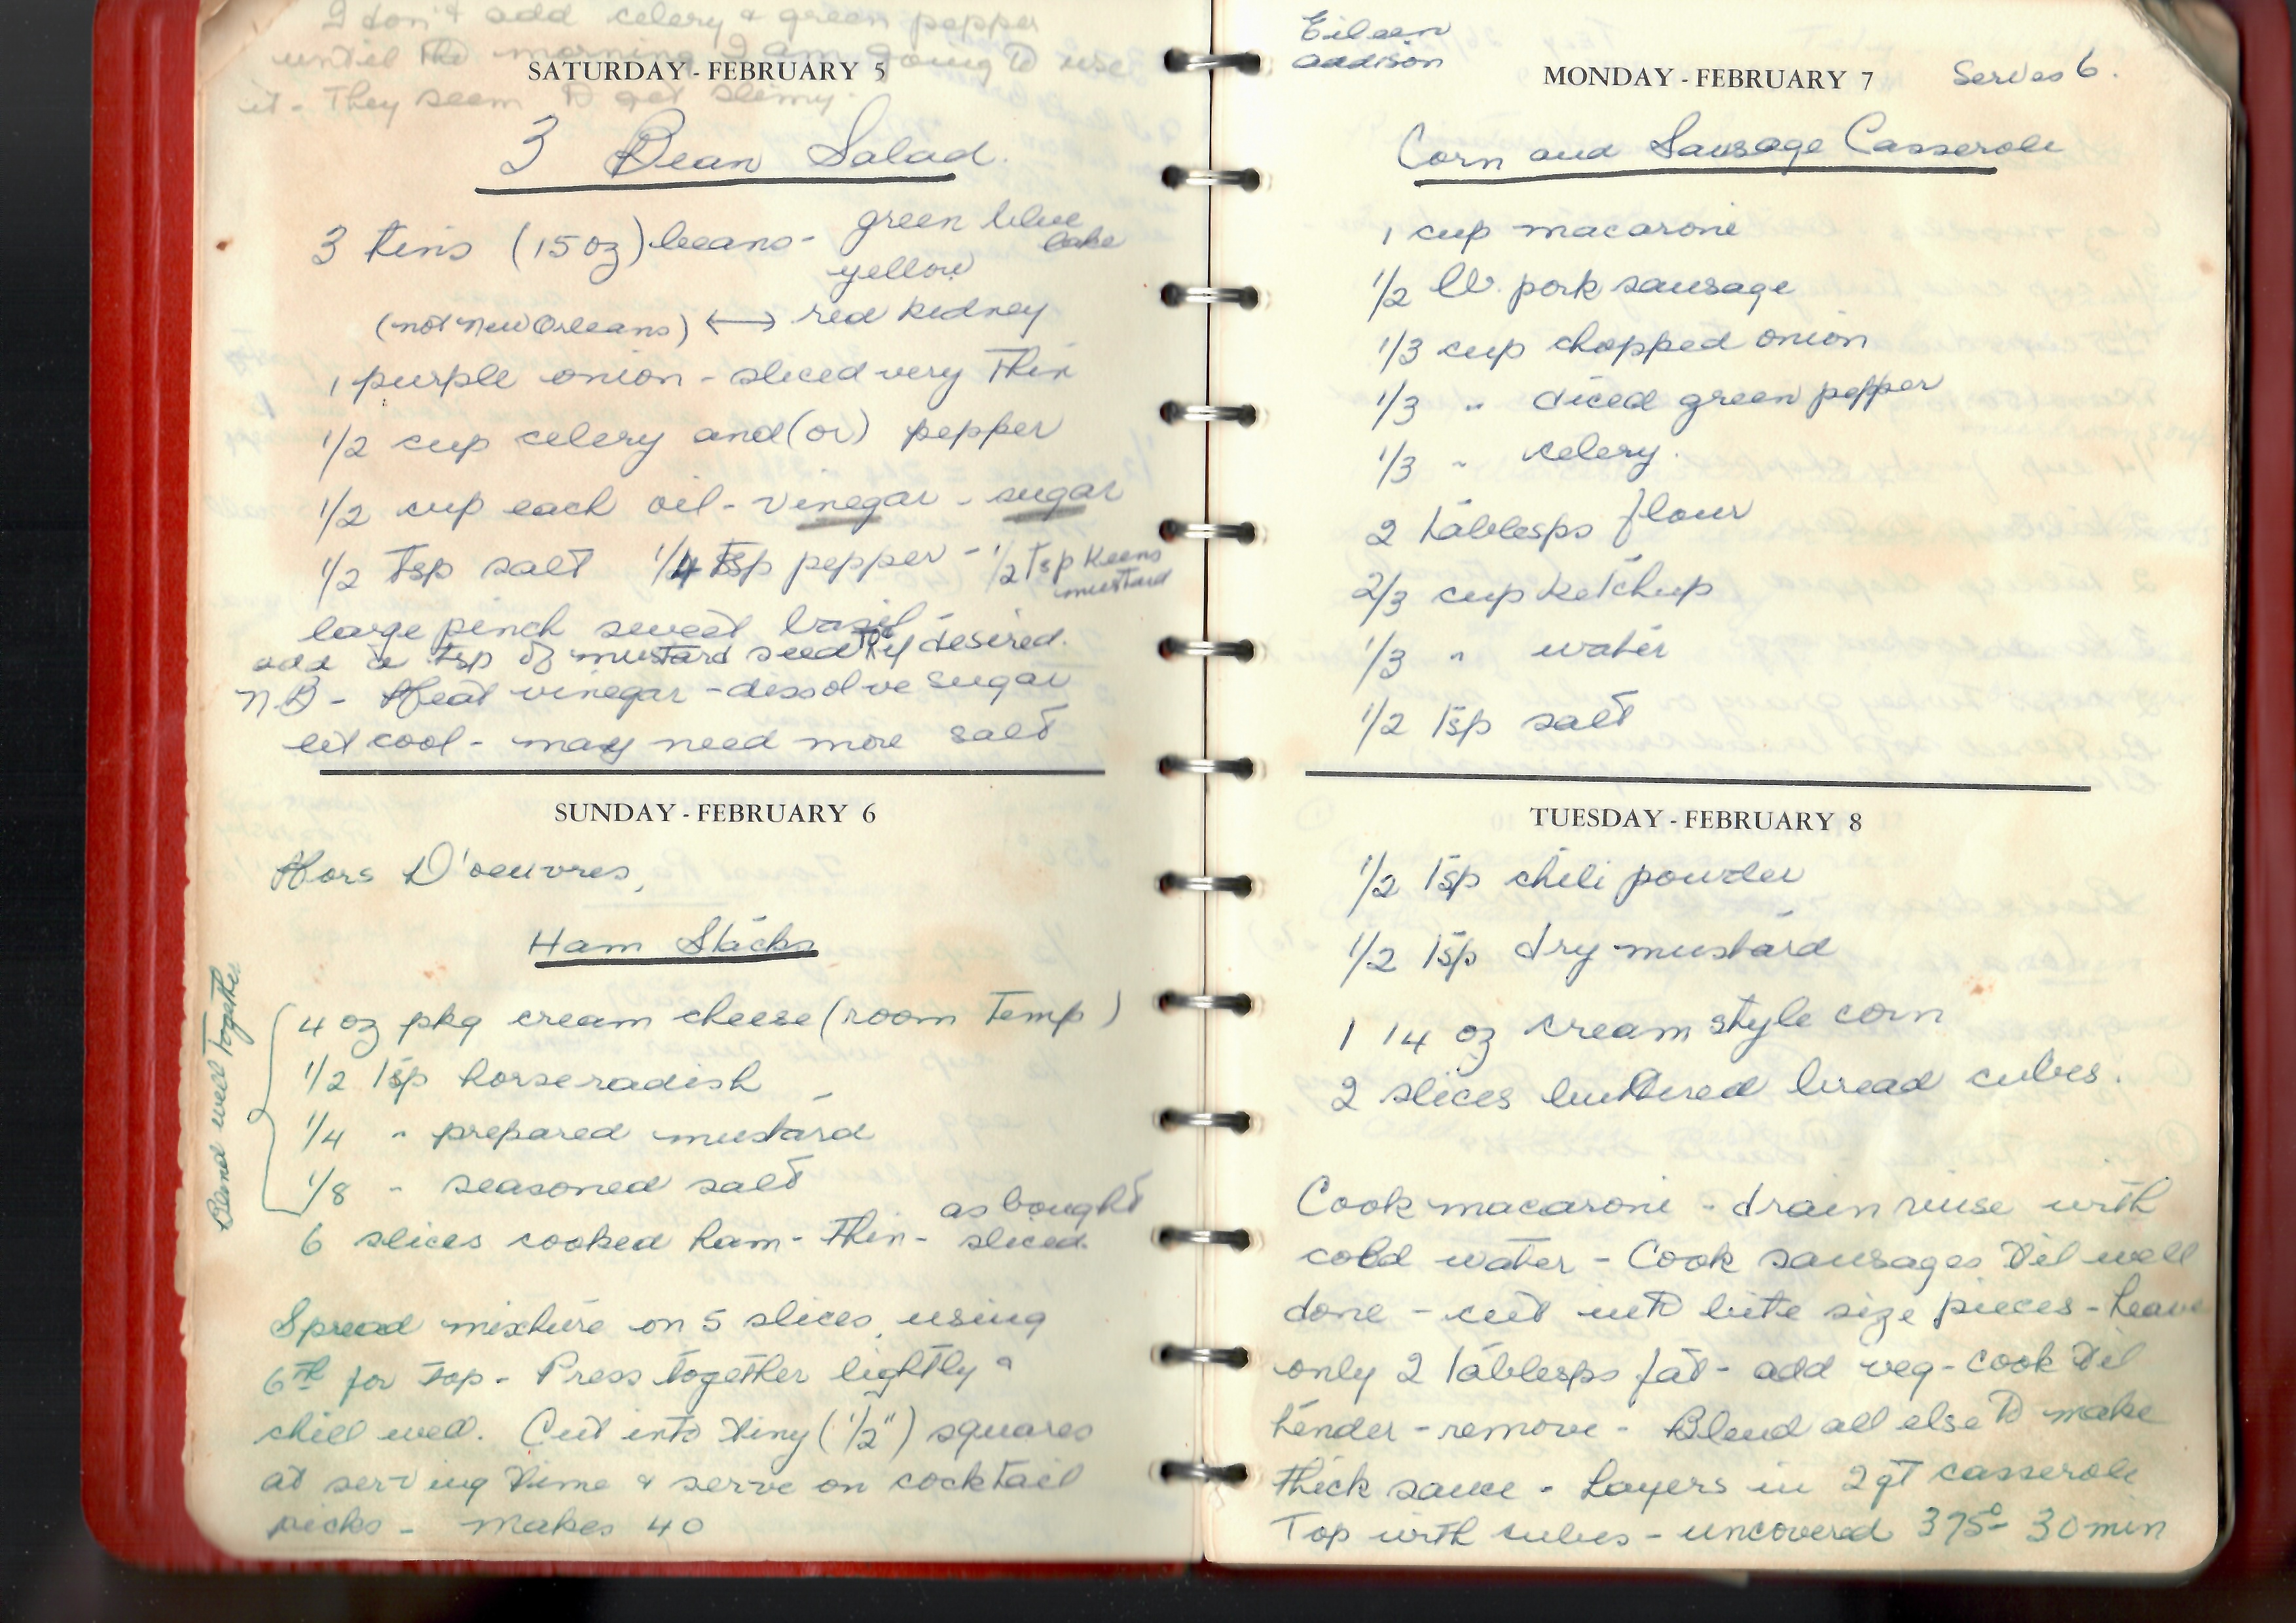 I don't add celery & green pepper
until the morning I am going to use
it - They seem to get slimy.
SATURDAY - FEBRUARY 5
3 Bean Salad.
3 tins (15 oz) beans - green blue lake
yellow
(not New Orleans) ↔ red kidney
1 purple onion - sliced very thin
1/2 cup celery and (or) pepper
1/2 cup each oil - vinegar - sugar
1/2 tsp salt 1/4 tsp pepper - 1/2 tsp Keens mustard
large pinch sweet basil
add a tsp of mustard seed if desired.
N.B - Heat vinegar - dissolve sugar
let cool - may need more salt
SUNDAY - FEBRUARY 6
Hors D'oeuvres,
Ham Stacks
Blend well together
4 oz pkg cream cheese (room temp)
1/2 tsp horseradish
1/4 " prepared mustard
1/8 " seasoned salt
6 slices cooked ham - thin - as bought sliced.
Spread mixture on 5 slices, using
6th for top - Press together lightly &
chill well. Cut into tiny (1/2") squares
at serving time & serve on cocktail
picks - Makes 40
Eileen
Addison
MONDAY - FEBRUARY 7
Serves 6.
Corn and Sausage Casserole
1 cup macaroni
1/2 lb. pork sausage
1/3 cup chopped onion
1/3 " diced green pepper
1/3 " celery.
2 tablesps flour
2/3 cup ketchup
1/3 " water
1/2 tsp salt
TUESDAY - FEBRUARY 8
1/2 tsp chili powder
1/2 tsp dry mustard
1 14 oz cream style corn
2 slices buttered bread cubes.
Cook macaroni - drain rinse with
cold water - Cook sausages til well
done - cut into bite size pieces - Leave
only 2 tablesps fat - add veg - cook til
tender - remove - Blend all else to make
thick sauce - Layers in 2 qt casserole
Top with cubes - uncovered 375° - 30 min